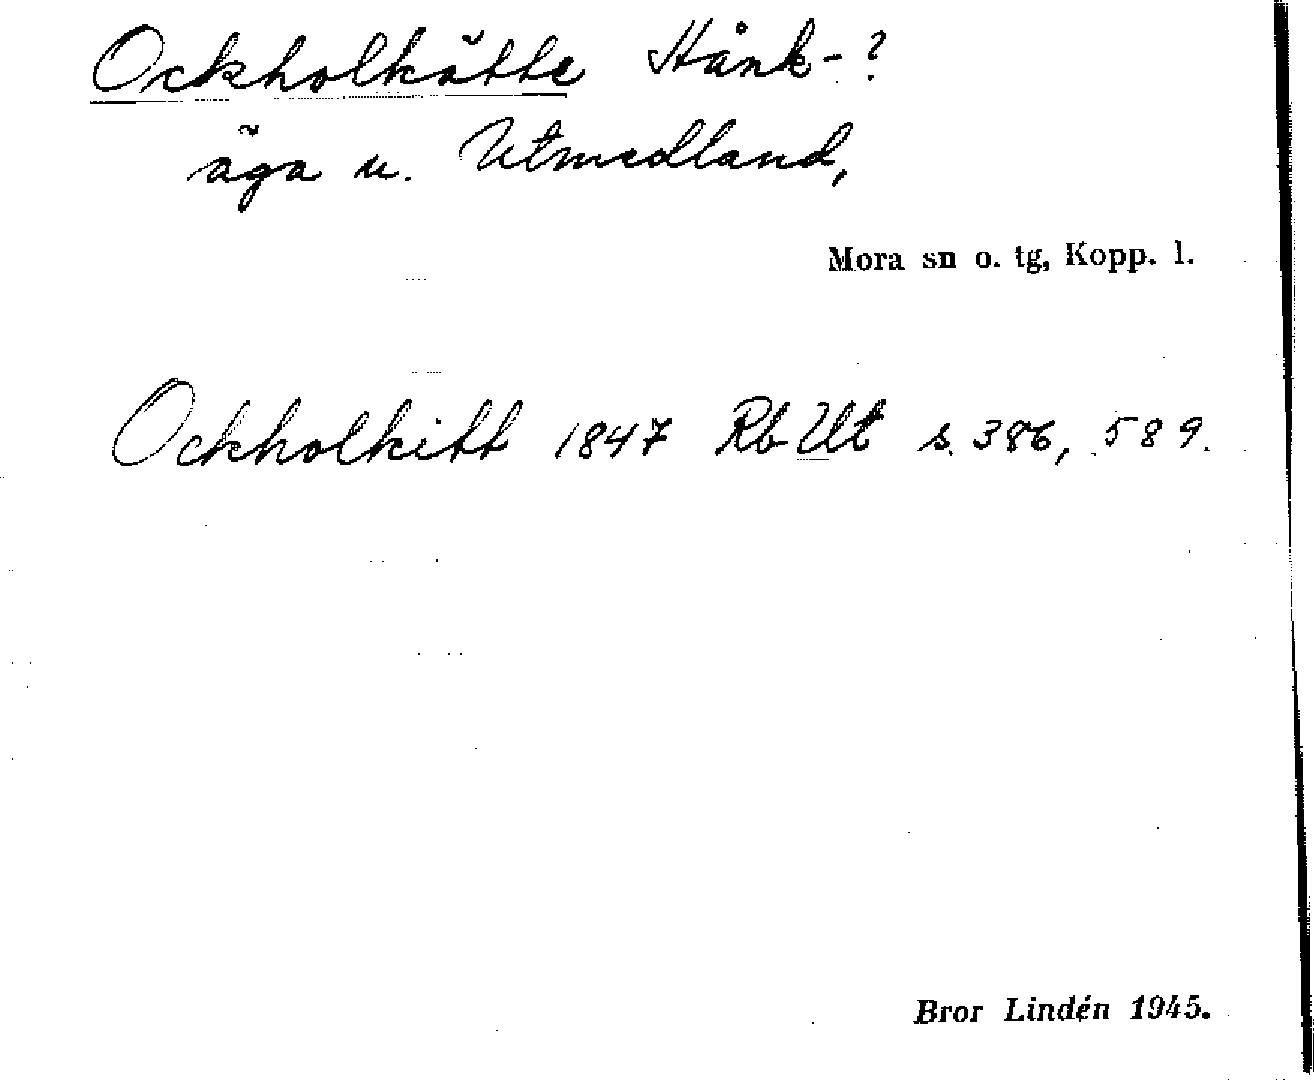 Ockholkätte Hånk-?
äga u. Utmedland,
Mora sn o. tg, Kopp. l.
Ockholkitt 1847 Rb Ut s. 386, 589.
Bror Lindén 1945.